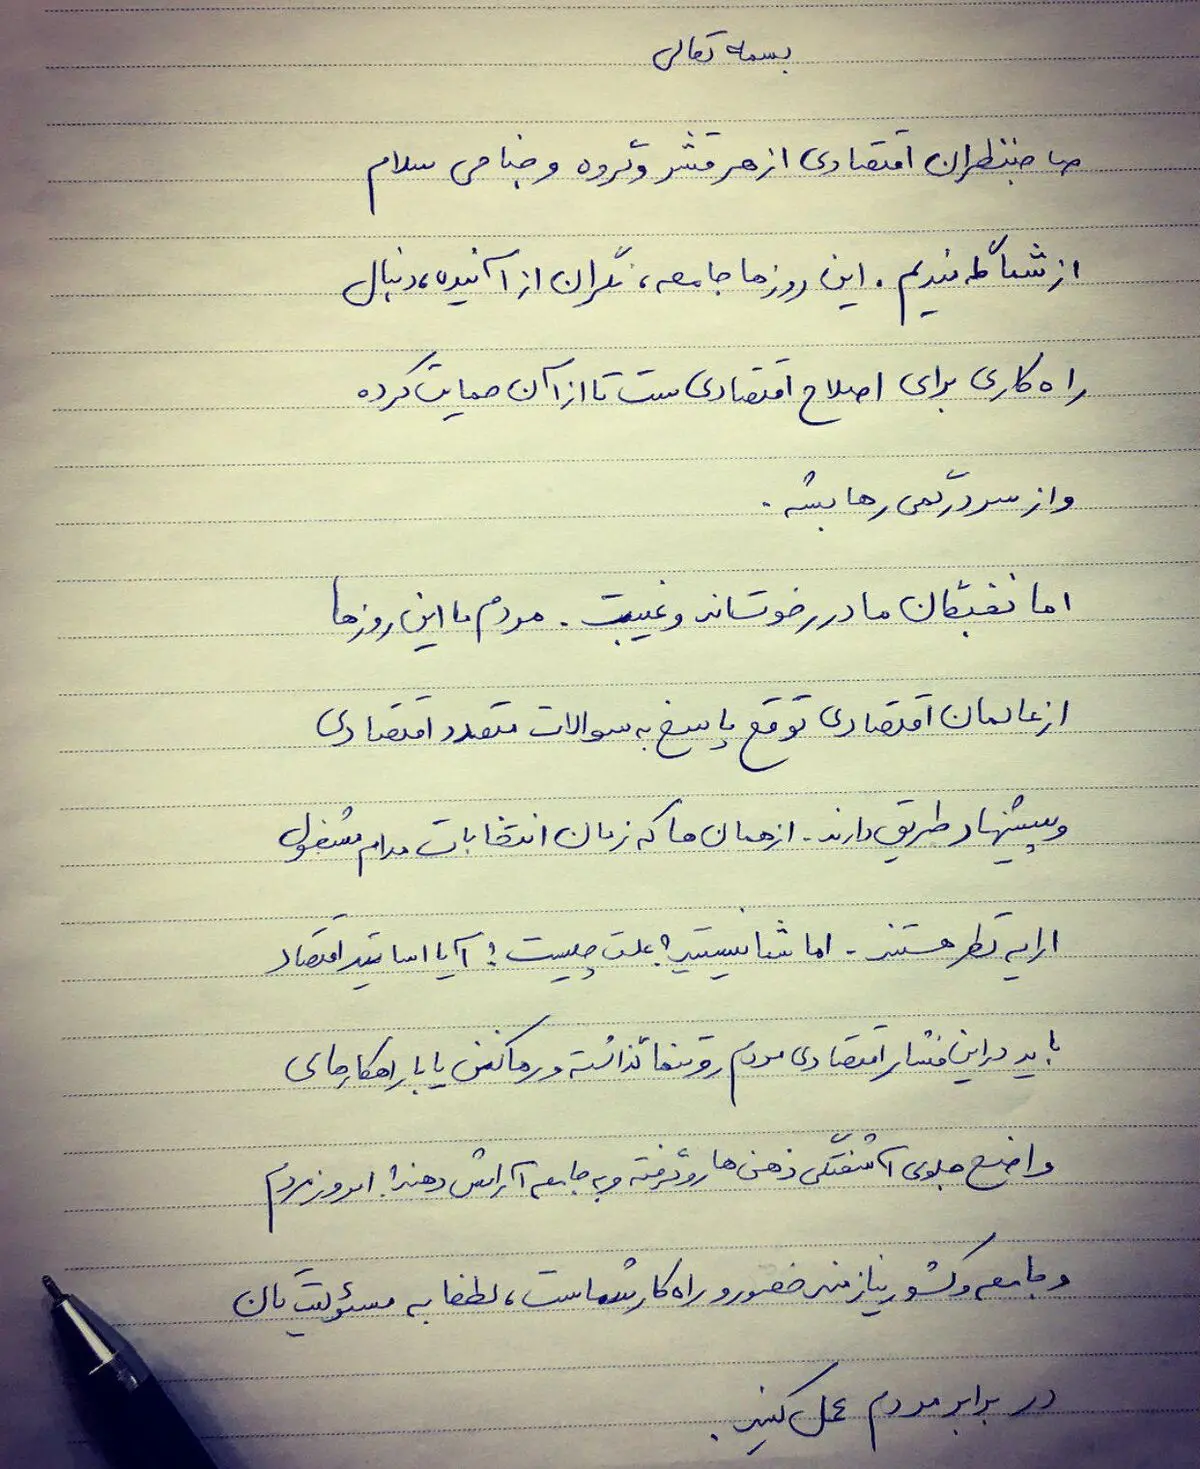 بسمه تعالی
صاحبنظران اقتصادی از هر قشر و گروه و جناحی سلام
از شما گله مندیم . این روزها جامعه، نگران از آینده، دنبال
راه کاری برای اصلاح اقتصادی ست تا از آن حمایت کرده
و از سردرگمی رها بشه .
اما نخبگان ما در رخوت‌اند و غیبت . مردم ما این روزها
از عالمان اقتصادی توقع پاسخ به سوالات متعدد اقتصادی
و پیشنهاد طریق دارند . از همان ها که زمان انتخابات مدام مشغول
ارایه نظر هستند . اما شما نیستید! علت چیست ؟ آیا اساتید اقتصاد
باید در این فشار اقتصادی مردم رو تنها گذاشته و رها کنن یا با راهکارهای
واضح جلوی آشفتگی ذهن ها رو گرفته و به جامعه آرامش دهند؟ امروز مردم
و جامعه و کشور نیازمند حضور و راه کار شماست ، لطفا به مسئولیت تان
در برابر مردم عمل کنید .